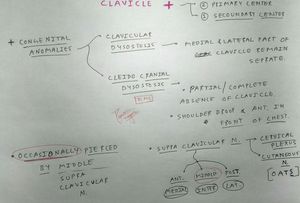 CLAVICLE +
② PRIMARY CENTER
① SECONDARY CENTER
+ CONGENITAL
ANOMALIES
CLAVICULAR
DYSOSTOSIS
MEDIAL & LATERAL PART OF
CLAVICLE REMAIN
SEPRATE.
CLEIDO CRANIAL
DYSOSTOSIS
• PARTIAL / COMPLETE
ABSENCE OF CLAVICLE.
• SHOULDER DROOP & ANT. IN
FRONT OF CHEST.
• OCCASIONALLY PIERCED
BY MIDDLE
SUPRA
CLAVICULAR
N.
• SUPRA CLAVICULAR N.
CERVICAL
PLEXUS
CUTANEOUS
N.
[OATS]
ANT. MIDDLE POST.
MEDIAL INTER LAT.